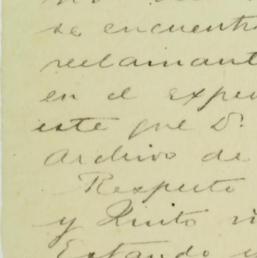 se encuentr
reclamant
en el expe
este que D.
Archivo de
Respecto
y Quito
Estando